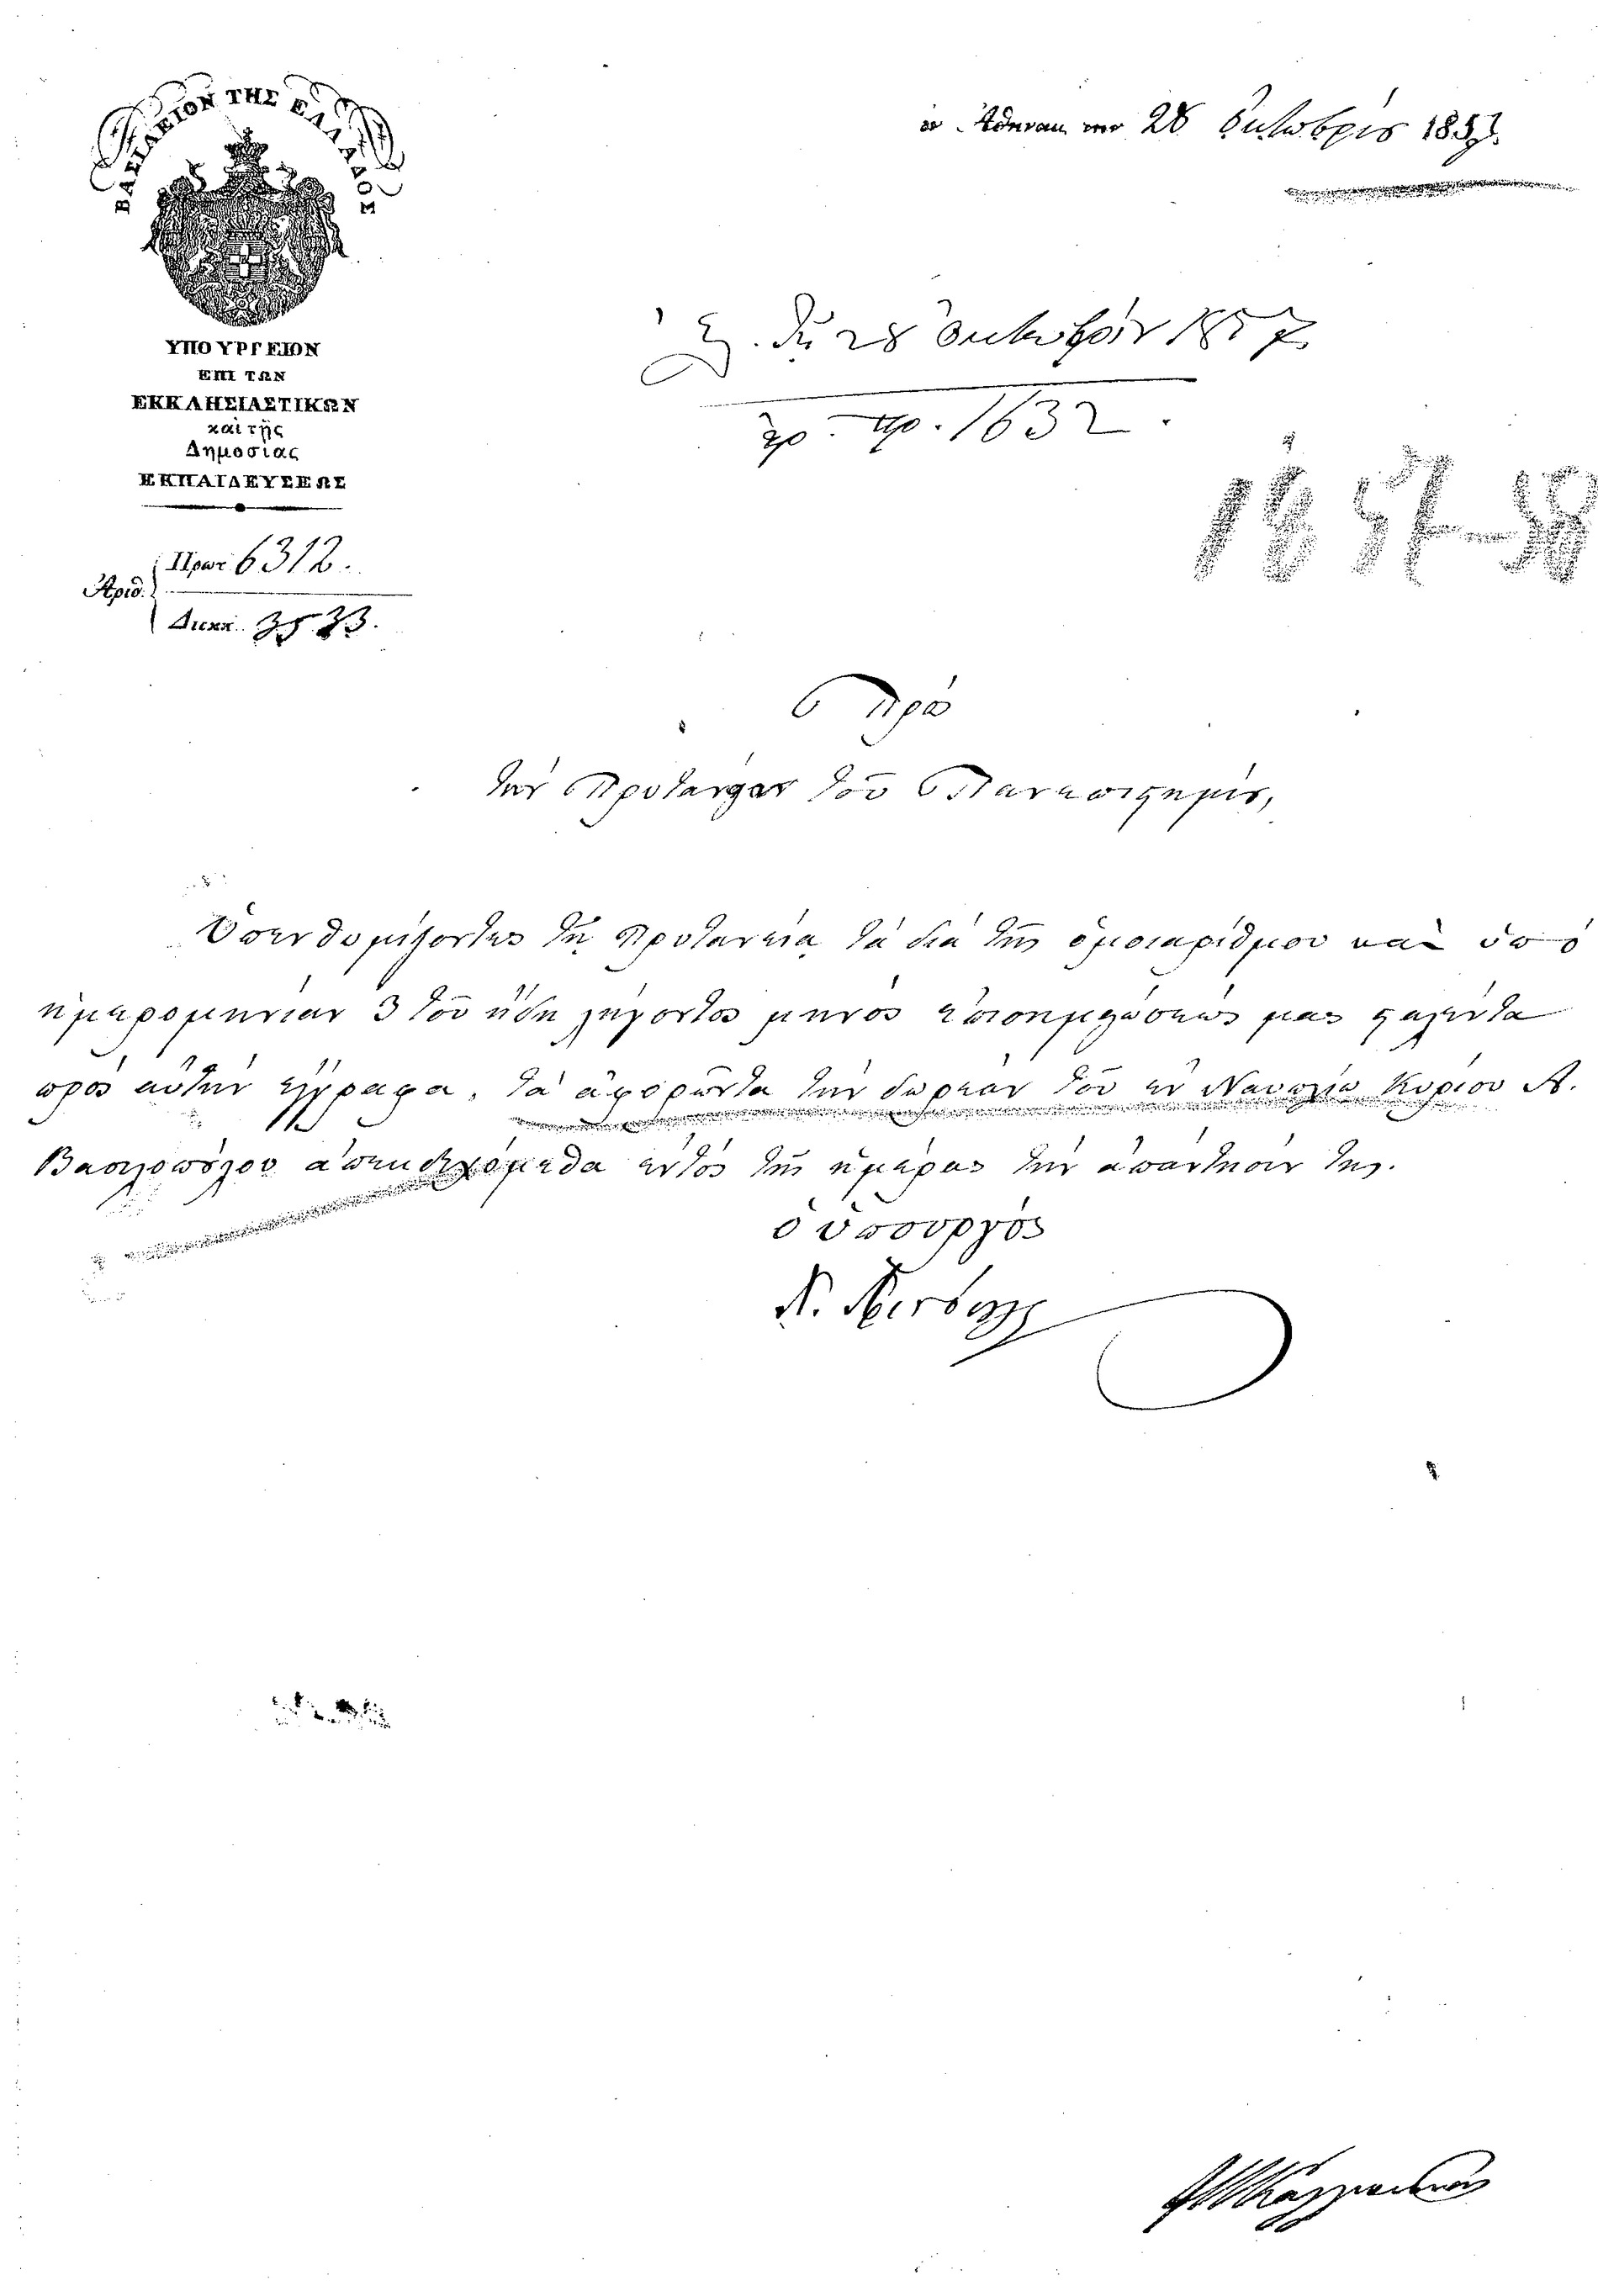 ΒΑΣΙΛΕΙΟΝ ΤΗΣ ΕΛΛΑΔΟΣ
ΥΠΟΥΡΓΕΙΟΝ
ΕΠΙ ΤΩΝ
ΕΚΚΛΗΣΙΑΣΤΙΚΩΝ
καὶ τῆς
Δημοσίας
ΕΚΠΑΙΔΕΥΣΕΩΣ
Ἀριθ. Πρωτ. 6312.
Διεκπ.
ἐν Ἀθήναις τὴν 28 Ὀκτωβρίου 1857.
τῇ 28 Ὀκτωβρίου 1857
πρ. 1632.
1857-58
Πρὸς
τὴν Πρυτανείαν τοῦ Πανεπιστημίου,
Ὑπενθυμίζοντες τῇ Πρυτανείᾳ τὰ διὰ τῆς ὁμοιαρίθμου καὶ ὑπὸ
ἡμερομηνίαν 3 τοῦ ἤδη λήγοντος μηνὸς ἐπισημειώσεώς μας σταλέντα
πρὸς αὐτὴν ἔγγραφα, τὰ ἀφορῶντα τὴν δωρεὰν τοῦ ἐν Ναυπλίῳ Κυρίου Α.
Βασιλοπούλου ἀπεκδεχόμεθα ἐντὸς τῆς ἡμέρας τὴν ἀπάντησίν της.
ὁ ὑπουργὸς